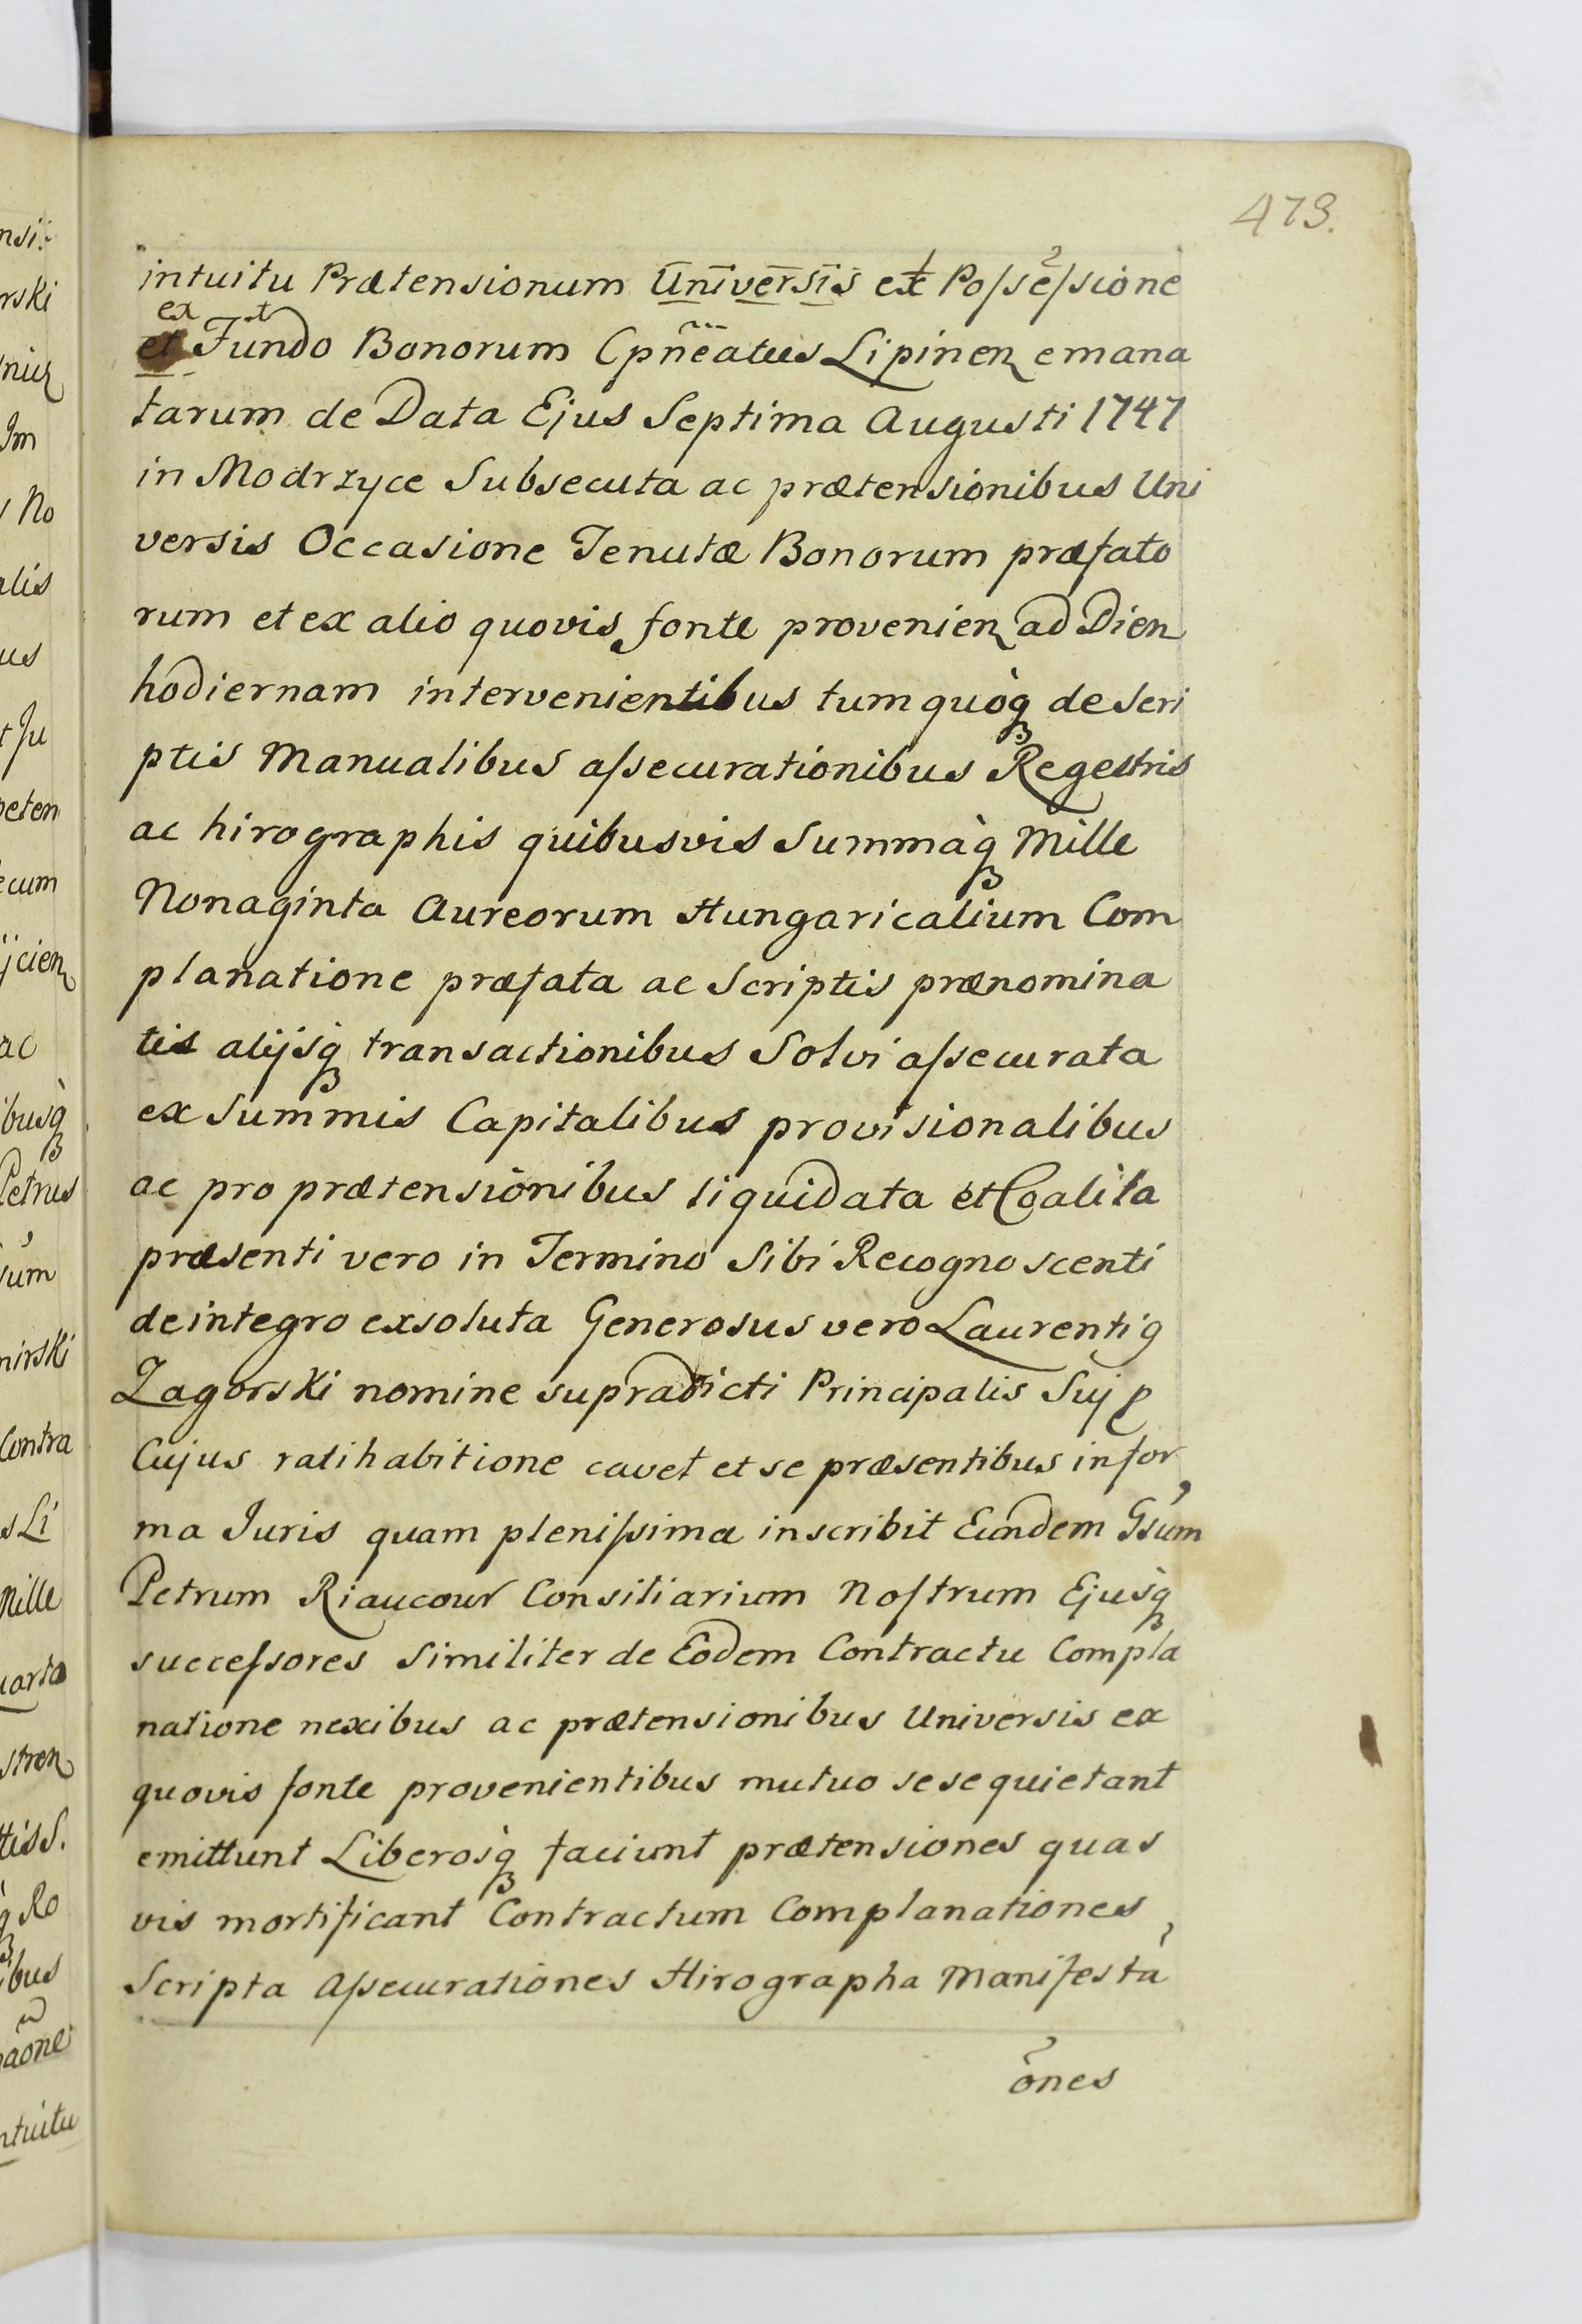 473.
intuitu Prætensionum Universis ex Possessione
ex
et Fundo Bonorum Cpnẽatus Lipinen emana
tarum de Data Ejus Septima Augusti 1747
in Modrzyce Subsecuta ac prætensionibus Uni
versis Occasione Tenutæ Bonorum præfato
rum et ex alio quovis fonte provenien ad Dien
hodiernam intervenientibus tum quòq de Scri
ptis Manualibus assecurationibus Regestris
ac hirographis quibusvis Summàq Mille
Nonaginta Aureorum Hungaricalium Com
planatione præfata ac Scriptis prænomina
tis alijsq̀ transactionibus Solvi assecurata
ex Summis Capitalibus provisionalibus
ac pro prætensionibus liquidata et Coalita
præsenti vero in Termino Sibi Recognoscenti
de integro exsoluta Generosus vero Laurentig
Zagorski nomine supradicti Principalis Suj p
Cujus ratihabitione cavet et se præsentibus in for
ma Juris quam plenissima inscribit Eundem Gsum
Petrum Riaucour Consiliarium Nostrum Ejusq̀
successores Similiter de Eodem Contractu Compla
natione nexibus ac prætensionibus Universis ex
quovis fonte provenientibus mutuo sese quietant
emittunt Liberosq̀ faciunt prætensiones quas
vis mortificant Contractum Complanationes
Scripta Assecurationes Hirographa Manifesta
ones